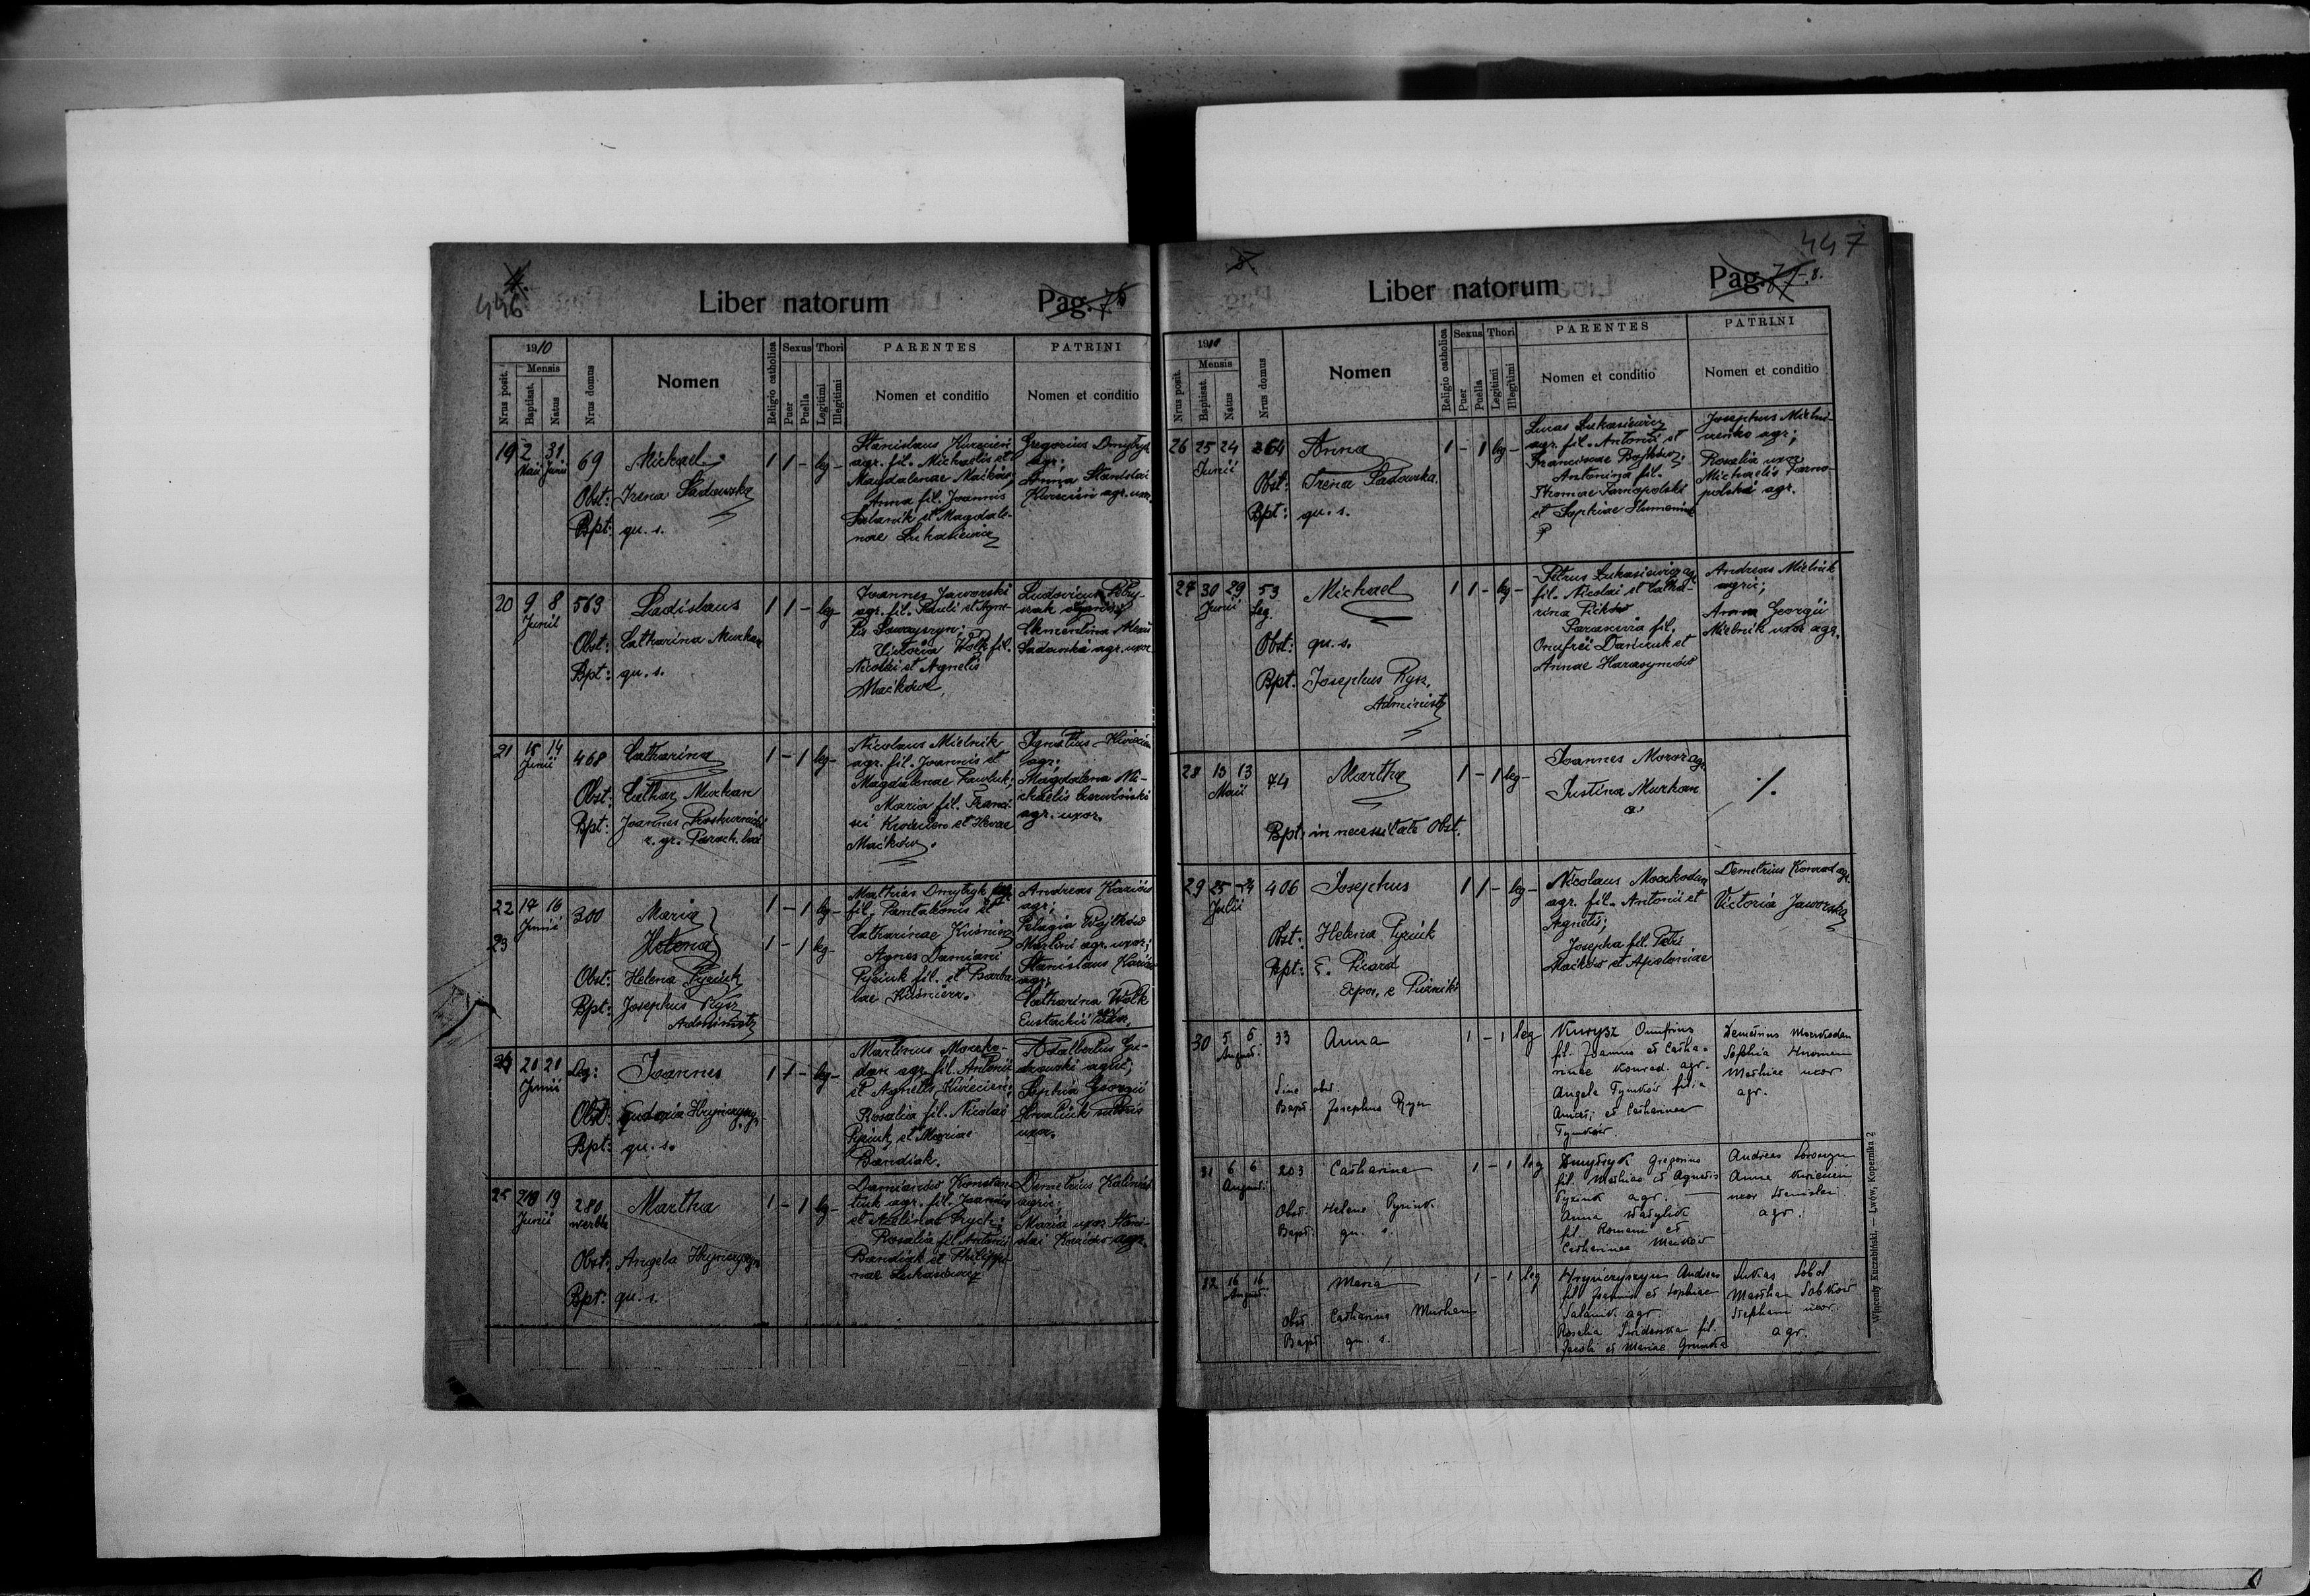 446
Liber natorum
Pag.
1910
Nrus posit.
Mensis
Baptisat.
Natus
Nrus domus
Nomen
Religio catholica
Sexus
Puer
Puella
Thori
Legitimi
Illegitimi
PARENTES
Nomen et conditio
PATRINI
Nomen et conditio
19 2 31 69 Michael 1 1 - leg -
Obst: Irena Sadowska
Bpt: qu. s.
Stanislaus Kwiecień
agr. fil. Michaelis et
Magdalenae Maćków;
Anna fil. Joannis
et Magdale-
nae Lukasiewicz
Gregorius Dmytryk
agr;
Anna Stanislai
Kwiecień agr. uxor.
20 9 8 Junii 563 Ladislaus 1 1 - leg -
Obst: Catharina Murkan
Bpt: qu. s.
Joannes Jaworski
agr. fil. Pauli et Agne-
tis
Victoria Wołk fil.
Nicolai et Agnetis
Maćków.
Ludovicus
Clementina
Sadowski agr. uxor
21 15 14 Junii 468 Catharina 1 - 1 leg -
Obst: Cathar. Murkan
Bpt: Joannes
r. gr. Paroch.
Nicolaus Mielnik
agr. fil. Joannis et
Magdalenae Pawluk;
Maria fil. Franci-
sci Kwiecien et
Maćków.
Ignatius Kwiecien
agr;
Magdalena Mi-
chaelis
agr. uxor.
22 17 16 Junii 300 Maria 1 - 1 leg -
23 Helena 1 - 1 leg -
Obst: Helena Pyziuk
Bpt: Josephus Rysz
Administr
Mathias Dmytryk agr.
fil. Pantaleonis et
Catharinae Kuśnierz
Agnes Damiani
Pyziuk fil. et Barba-
rae Kuśnierz.
Andreas Kaziów
agr;
Pelagia Wojtków
Martini agr. uxor;
Stanislaus Kaziów
agr;
Catharina Wołk
Eustachii uxor.
24 20 20 Junii Leg: Joannes 1 1 - leg -
Obst: Hryniczyszyn
Bpt: qu. s.
Martinus Mocko-
dan agr. fil. Antonii
et Agnetis Kwiecien;
Rosalia fil. Nicolai
Pyziuk et Mariae
Bandiak.
Adalbertus
Sophia Georgii
uxor.
25 20 19 Junii 280 Martha 1 - 1 leg -
Obst: Angela Hryniczyszyn
Bpt: qu. s.
Konstan-
tiuk agr. fil. Joannis
et
Rosalia fil. Antonii
Bandiak et Philippi-
nae Lukasiewicz
Demetrius
agric;
Maria uxor Stani-
slai Kaziów agr.
447
Liber natorum
Pag.
1910
Nrus posit.
Mensis
Baptisat.
Natus
Nrus domus
Nomen
Religio catholica
Sexus
Puer
Puella
Thori
Legitimi
Illegitimi
PARENTES
Nomen et conditio
PATRINI
Nomen et conditio
26 25 24 Junii 264 Anna 1 - 1 leg -
Obst: Irena Sadowska
Bpt: qu. s.
Lucas Lukasiewicz
agr. fil. Antonii et
Franciscae
Antonina fil.
Thomae Tarnopolski
et Sophiae
Josephus Mielni-
czeńko agr;
Rosalia uxor
Michaelis Tarno-
polski agr.
27 30 29 Junii 53 Michael 1 1 - leg -
Leg.
Obst: qu. s.
Bpt: Josephus Rysz,
Administr
Petrus Lukasiewicz agr
fil. Nicolai et Catha-
rina
Parascevia fil.
Onufrei Daniczuk et
Annae Harasymów
Andreas Mielnik
agric;
Anna Georgii
Mielnik uxor agr.
28 13 13 Maii 74 Martha 1 - 1 leg -
Bpt: in necessitate Obst.
Joannes Moroz agr.
Justina Murkan
29 25 24 Julii 406 Josephus 1 1 - leg -
Obst: Helena Pyziuk
Bpt: E. Picard
Expos. e
Nicolaus Mockodan
agr. fil. Antonii et
Agnetis;
Josepha fil. Petri
Maćków et Apoloniae
Demetrius Konrad agr.
Victoria Jaworska
30 5 5 August. 33 Anna 1 - 1 leg
Sine obst.
Bapt: Josephus Rysz
Onufrius
fil. Joannis et Catha-
rinae Konrad. agr.
Angela Tymków filia
et Catharinae
Tymków.
Demetrius Mockodan
Sophia
Mathiae uxor
agr.
31 6 6 August. 203 Catharina 1 - 1 leg
Obst. Helena Pyziuk
Bapt: qu. s.
Dmytryk Gregorius
fil. Mathiae et Agnetis
Pyziuk agr.
Anna
fil. Romani et
Catharinae Maćków
Andreas
Anna Kwiecień
uxor Stanislai
agr.
32 16 16 August. Maria 1 - 1 leg
Obst. Catharina Murkan
Bapt. qu. s.
Hryniczyszyn Andreas
fil. Joannis et Sophiae
agr
Rosalia fil.
Jacobi et Mariae
Lukas Sobol
Martha Sobków
Stephani uxor.
agr.
Wincenty Kuczabiński. — Lwów, Kopernika 2